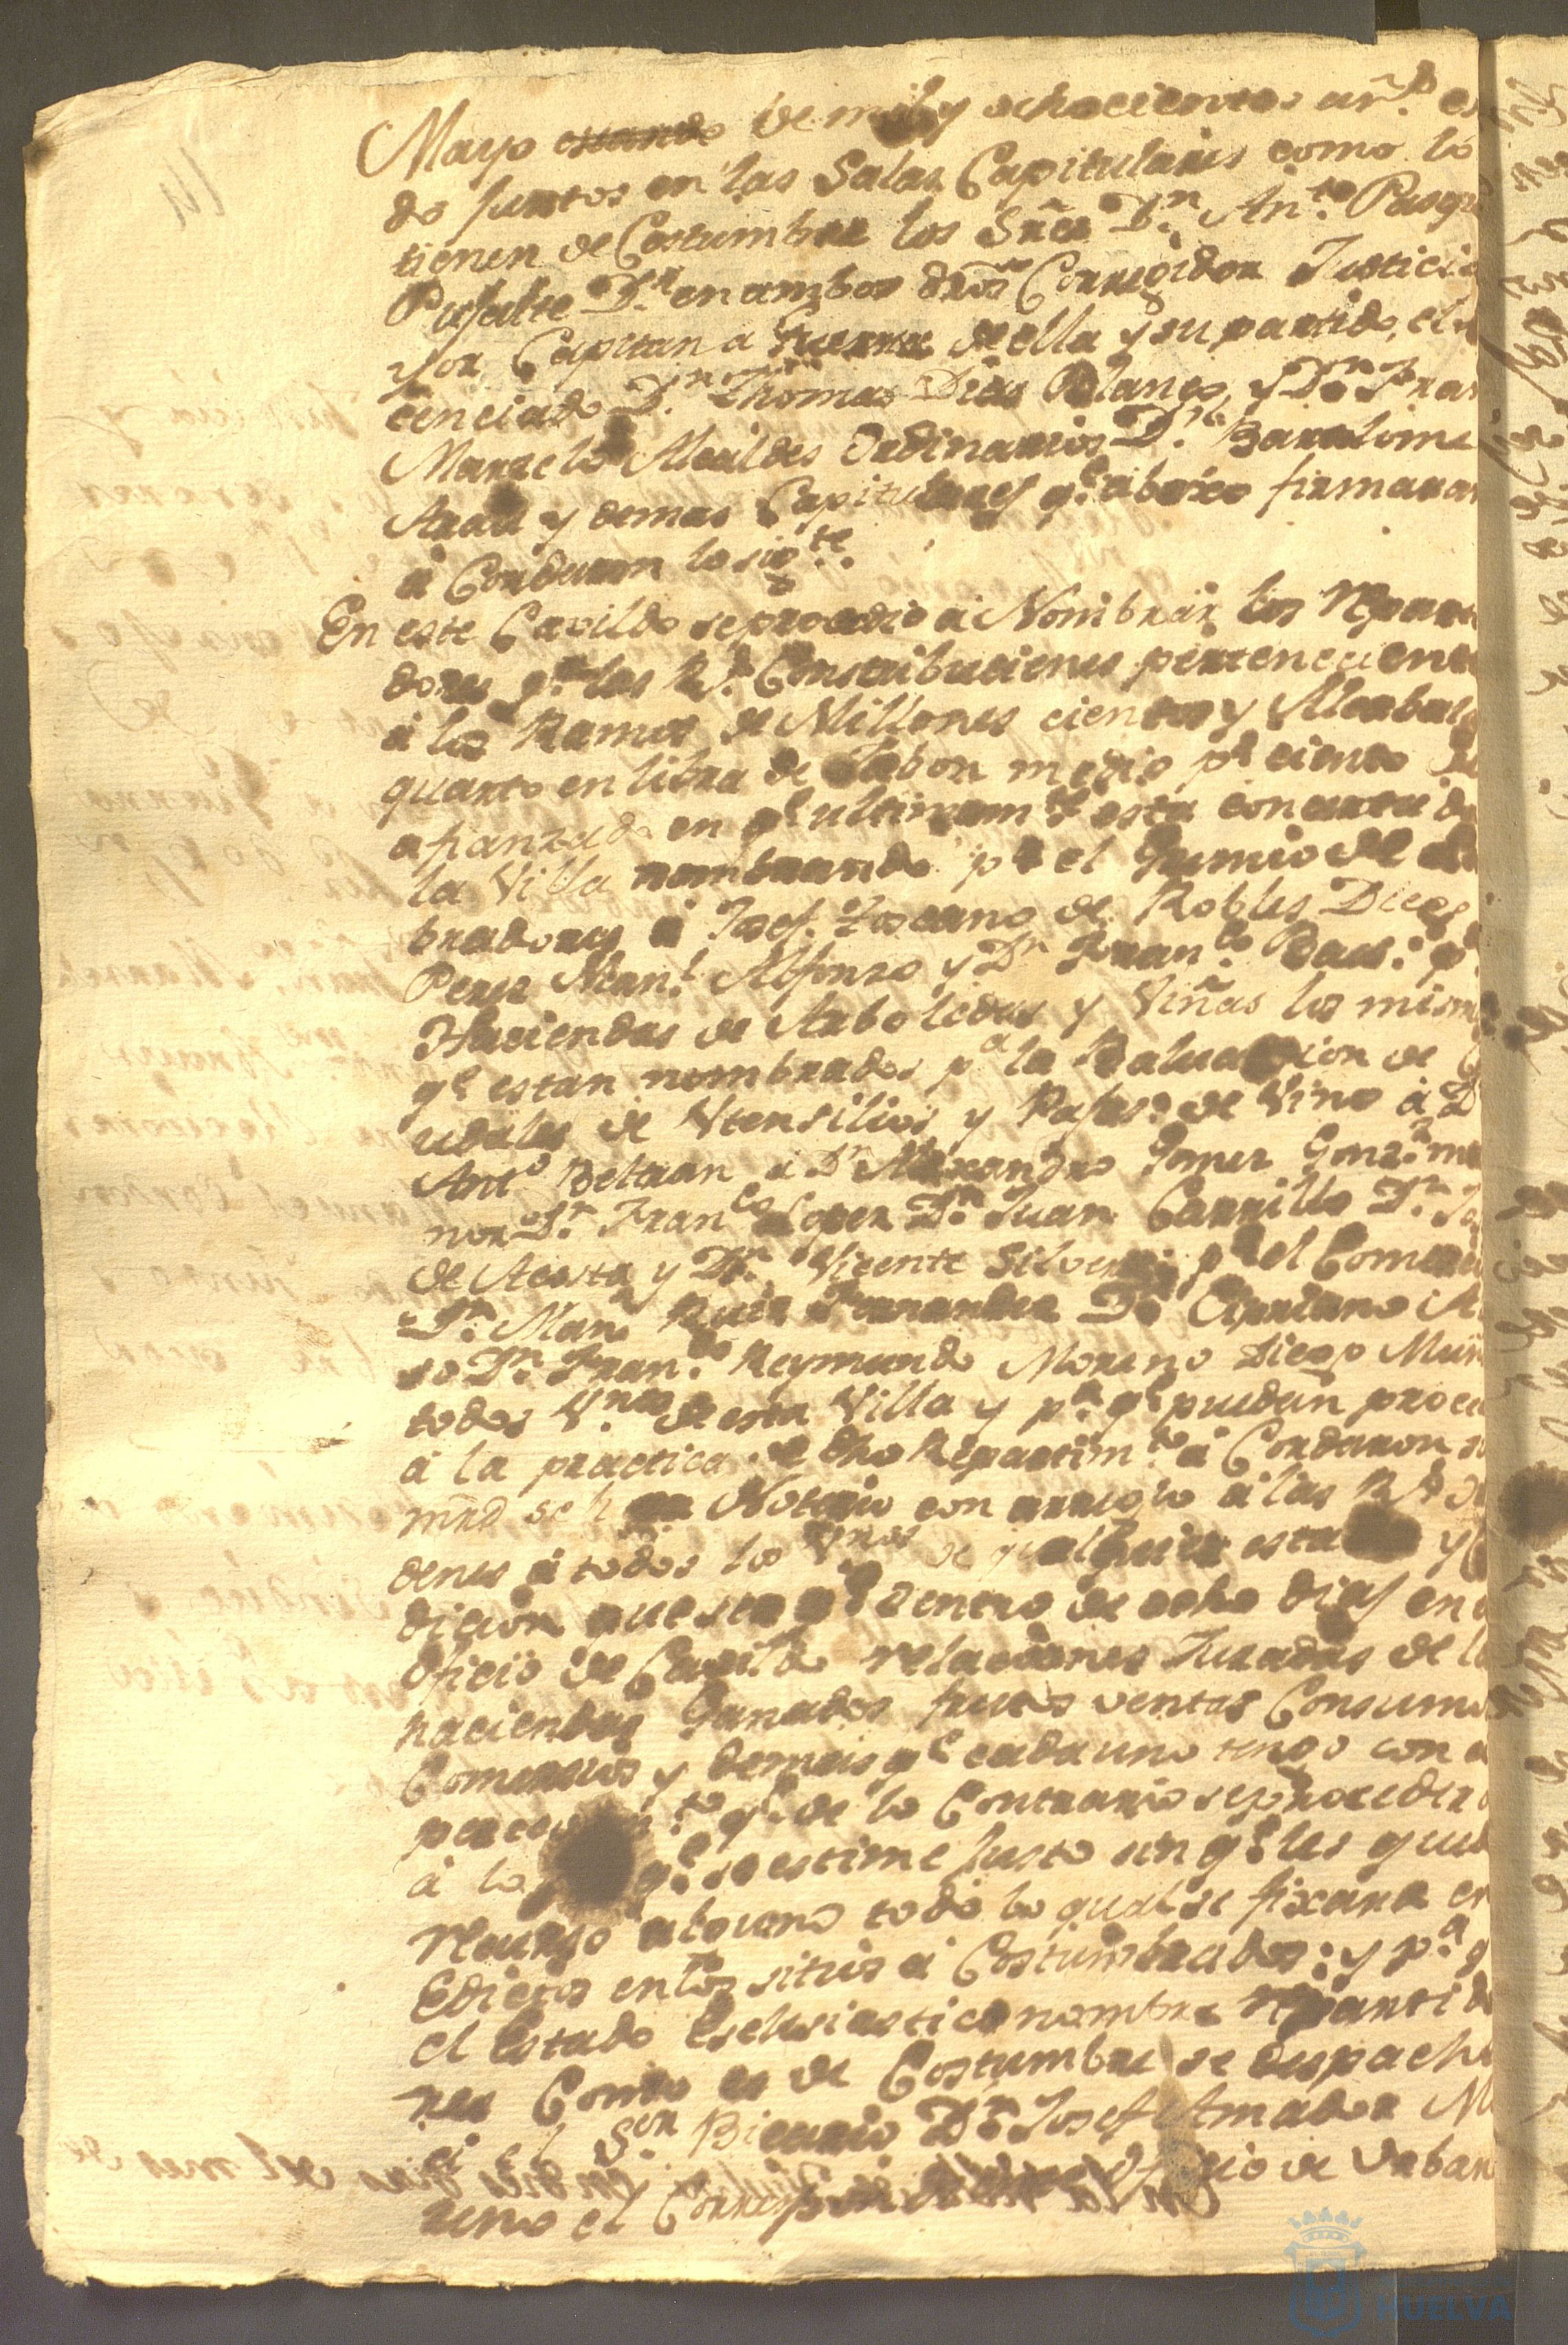 Mayo estando de mil y ochocientos añ.s es
do Juntos en las Salas Capitulares como lo
tienen de Costumbre los Sñres D.n Ant.o Pasqu
D.r en ambos dros Corregidor Justicia
yor Capitan a Guerra de ella y su partido, el
cenciado D.n Thomas Dias Blanco, y D.n Fran
Marzelo Alcaldes Ordinarios D.n Bartolome
y demas Capitulares q.e abaxo firmaran
á Cordaron lo sig.te
En este Cavildo se procedio á Nombrar los Reparti
dores p.a las R.s Contribuciones pertenecient
á los Ramos de Millones cientos y Alcabalas
quarto en libra de Jabon medio p.r ciento
afianzado en q.e ultimam.te esta concertada
la Villa nombrando p.r el Gremio de La
bradores á Josef Toscano de Robles Diego
Perez Man.l Alfonso y D.n Fran.co Baes: p.r
Haciendas de Arboledas y Viñas los mism
q.e estan nombrados p.a la Baluacion de C
udales de Utensilios y de Vino á D
Ant.o Beltran á D.n Alexandro Gomez Gonz.z me
nor D.n Fran.co Lopez D.n Juan Carrillo D.n Jo
de Acosta y D.n Vicente Silvera; p.r el Comerci
D.n Man.l Ruiz Fernandez D.n Cipriano A
so D.n Fran.co Reymundo Moreno Diego Muñ
todos V.nos de esta Villa y p.a q.e puedan proce
á la practica de dho Repartim.to á Cordaron su
mrd se haga Notorio con arreglo á las R.s Or
denes á todos los V.nos de qualquier estado y Co
dicion que sea q.e dentro de ocho dias en el
Oficio de Cavildo relaciones Juradas de la
haciendas Ganados frutos ventas Consumo
Comercios y demas q.e cada uno tenga con a
q.e de lo Contrario se procedera
á lo q.e se estime Justo sin q.e les qued
recurso alguno todo lo qual se fixara en
Edictos en los sitios á Costumbrados: y p.a q
el Estado Eclesiastico nombre repartido
res Como es de Costumbre se despache
á el S.or Bicario D.n Josef Amador M
reno el Correspondiente Oficio de Urban
HUELVA